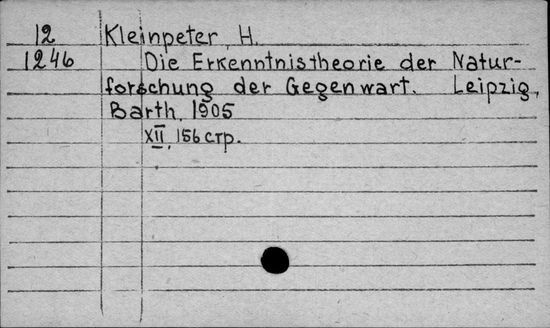 12 Kleinpeter, H.
1246 Die Erkenntnistheorie der Natur-
forschung der Gegenwart. Leipzig,
Barth, 1905
XII, 156 стр.